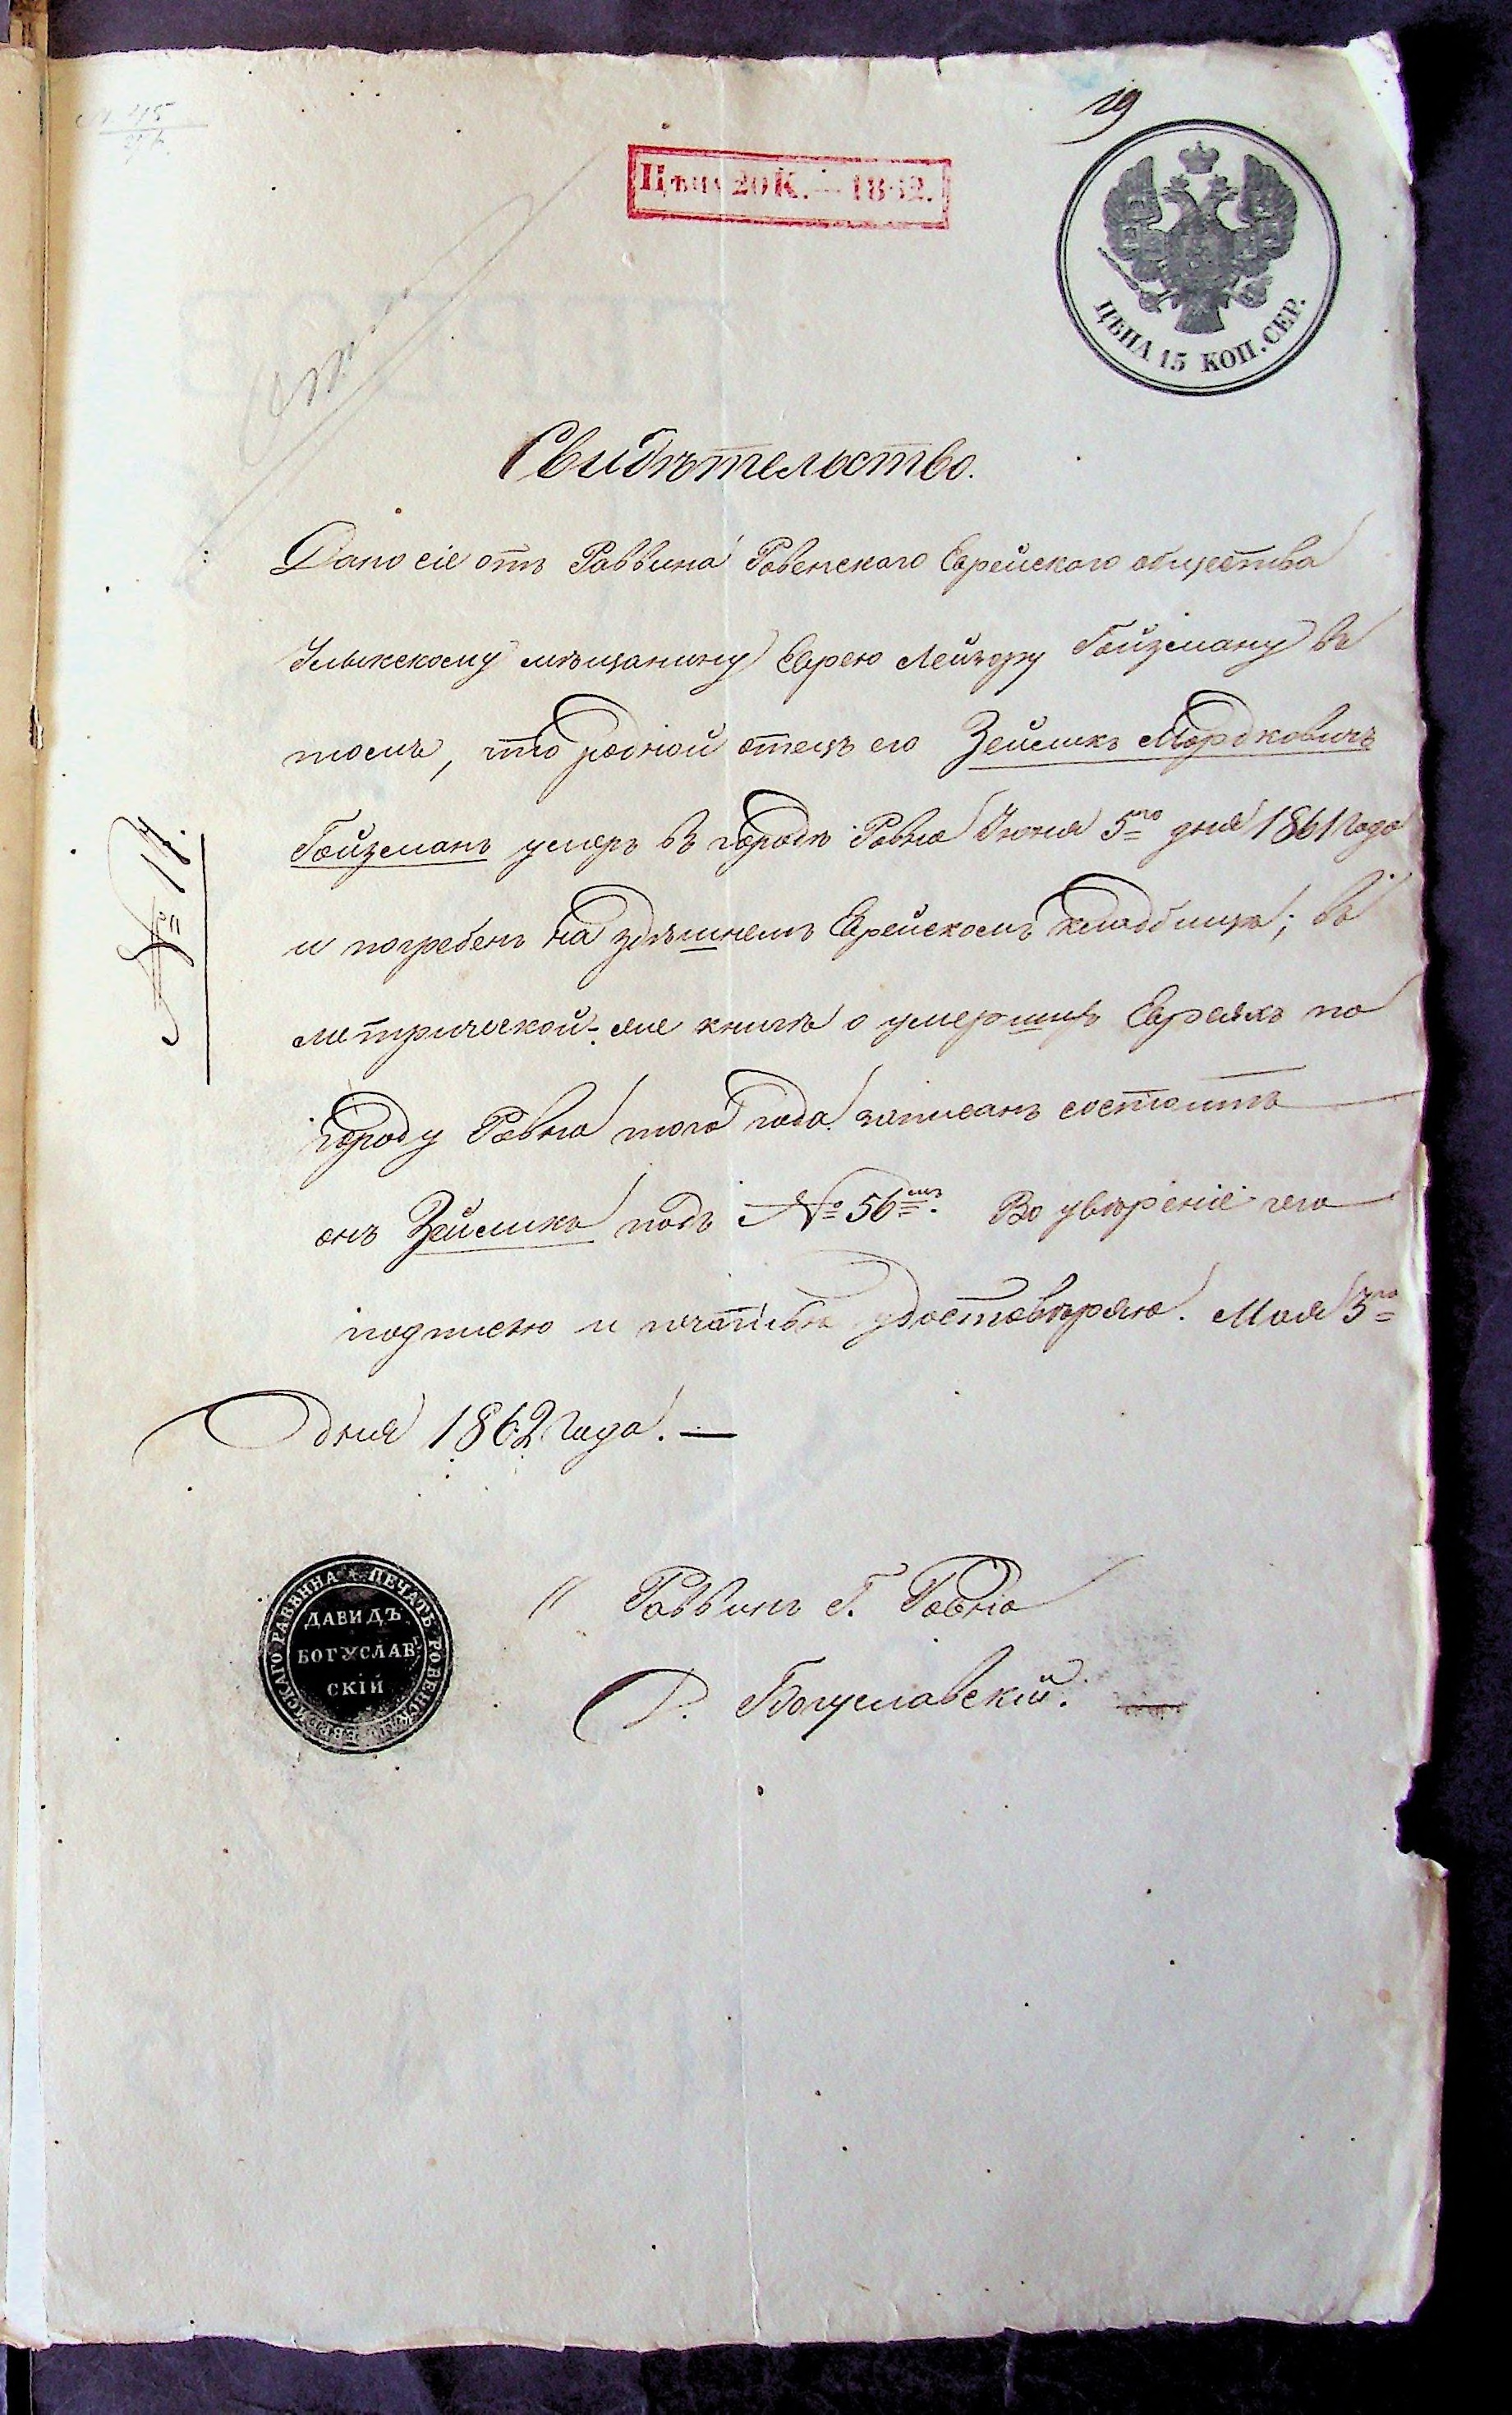 19
Цѣна 20 К. — 1862.
ЦѢНА 15 КОП. СЕР.
Свидѣтельство.
Дано сіе отъ Раввина Ровенскаго Еврейскаго общества
Улыкскому мѣщанину Еврею Лейзору Гойзману въ
томъ, что родной отецъ его Зейликъ Мордковичъ
Гойзманъ умеръ въ городѣ Ровно Іюня 5го дня 1861 года
и погребенъ на здѣшнемъ Еврейскомъ кладбищѣ; въ
метрической-же книгѣ о умершихъ Евреяхъ по
городу Ровно того года записанъ состоитъ
онъ Зейликъ подъ № 56мъ. Во увѣреніе чего
подписью и печатью удостовѣряю. Мая 3го
дня 1862 года. —
№ 17.
Раввинъ Г. Ровно
Д. Богуславскій.
ПЕЧАТЬ РОВЕНСКАГО ЕВРЕЙСКАГО РАВВИНА
ДАВИДЪ
БОГУСЛАВ
СКІЙ